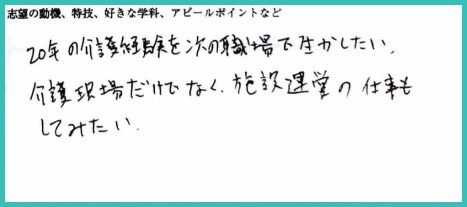 志望の動機、特技、好きな学科、アピールポイントなど
20年の介護経験を次の職場で生かしたい。
介護現場だけでなく、施設運営の仕事も
してみたい。